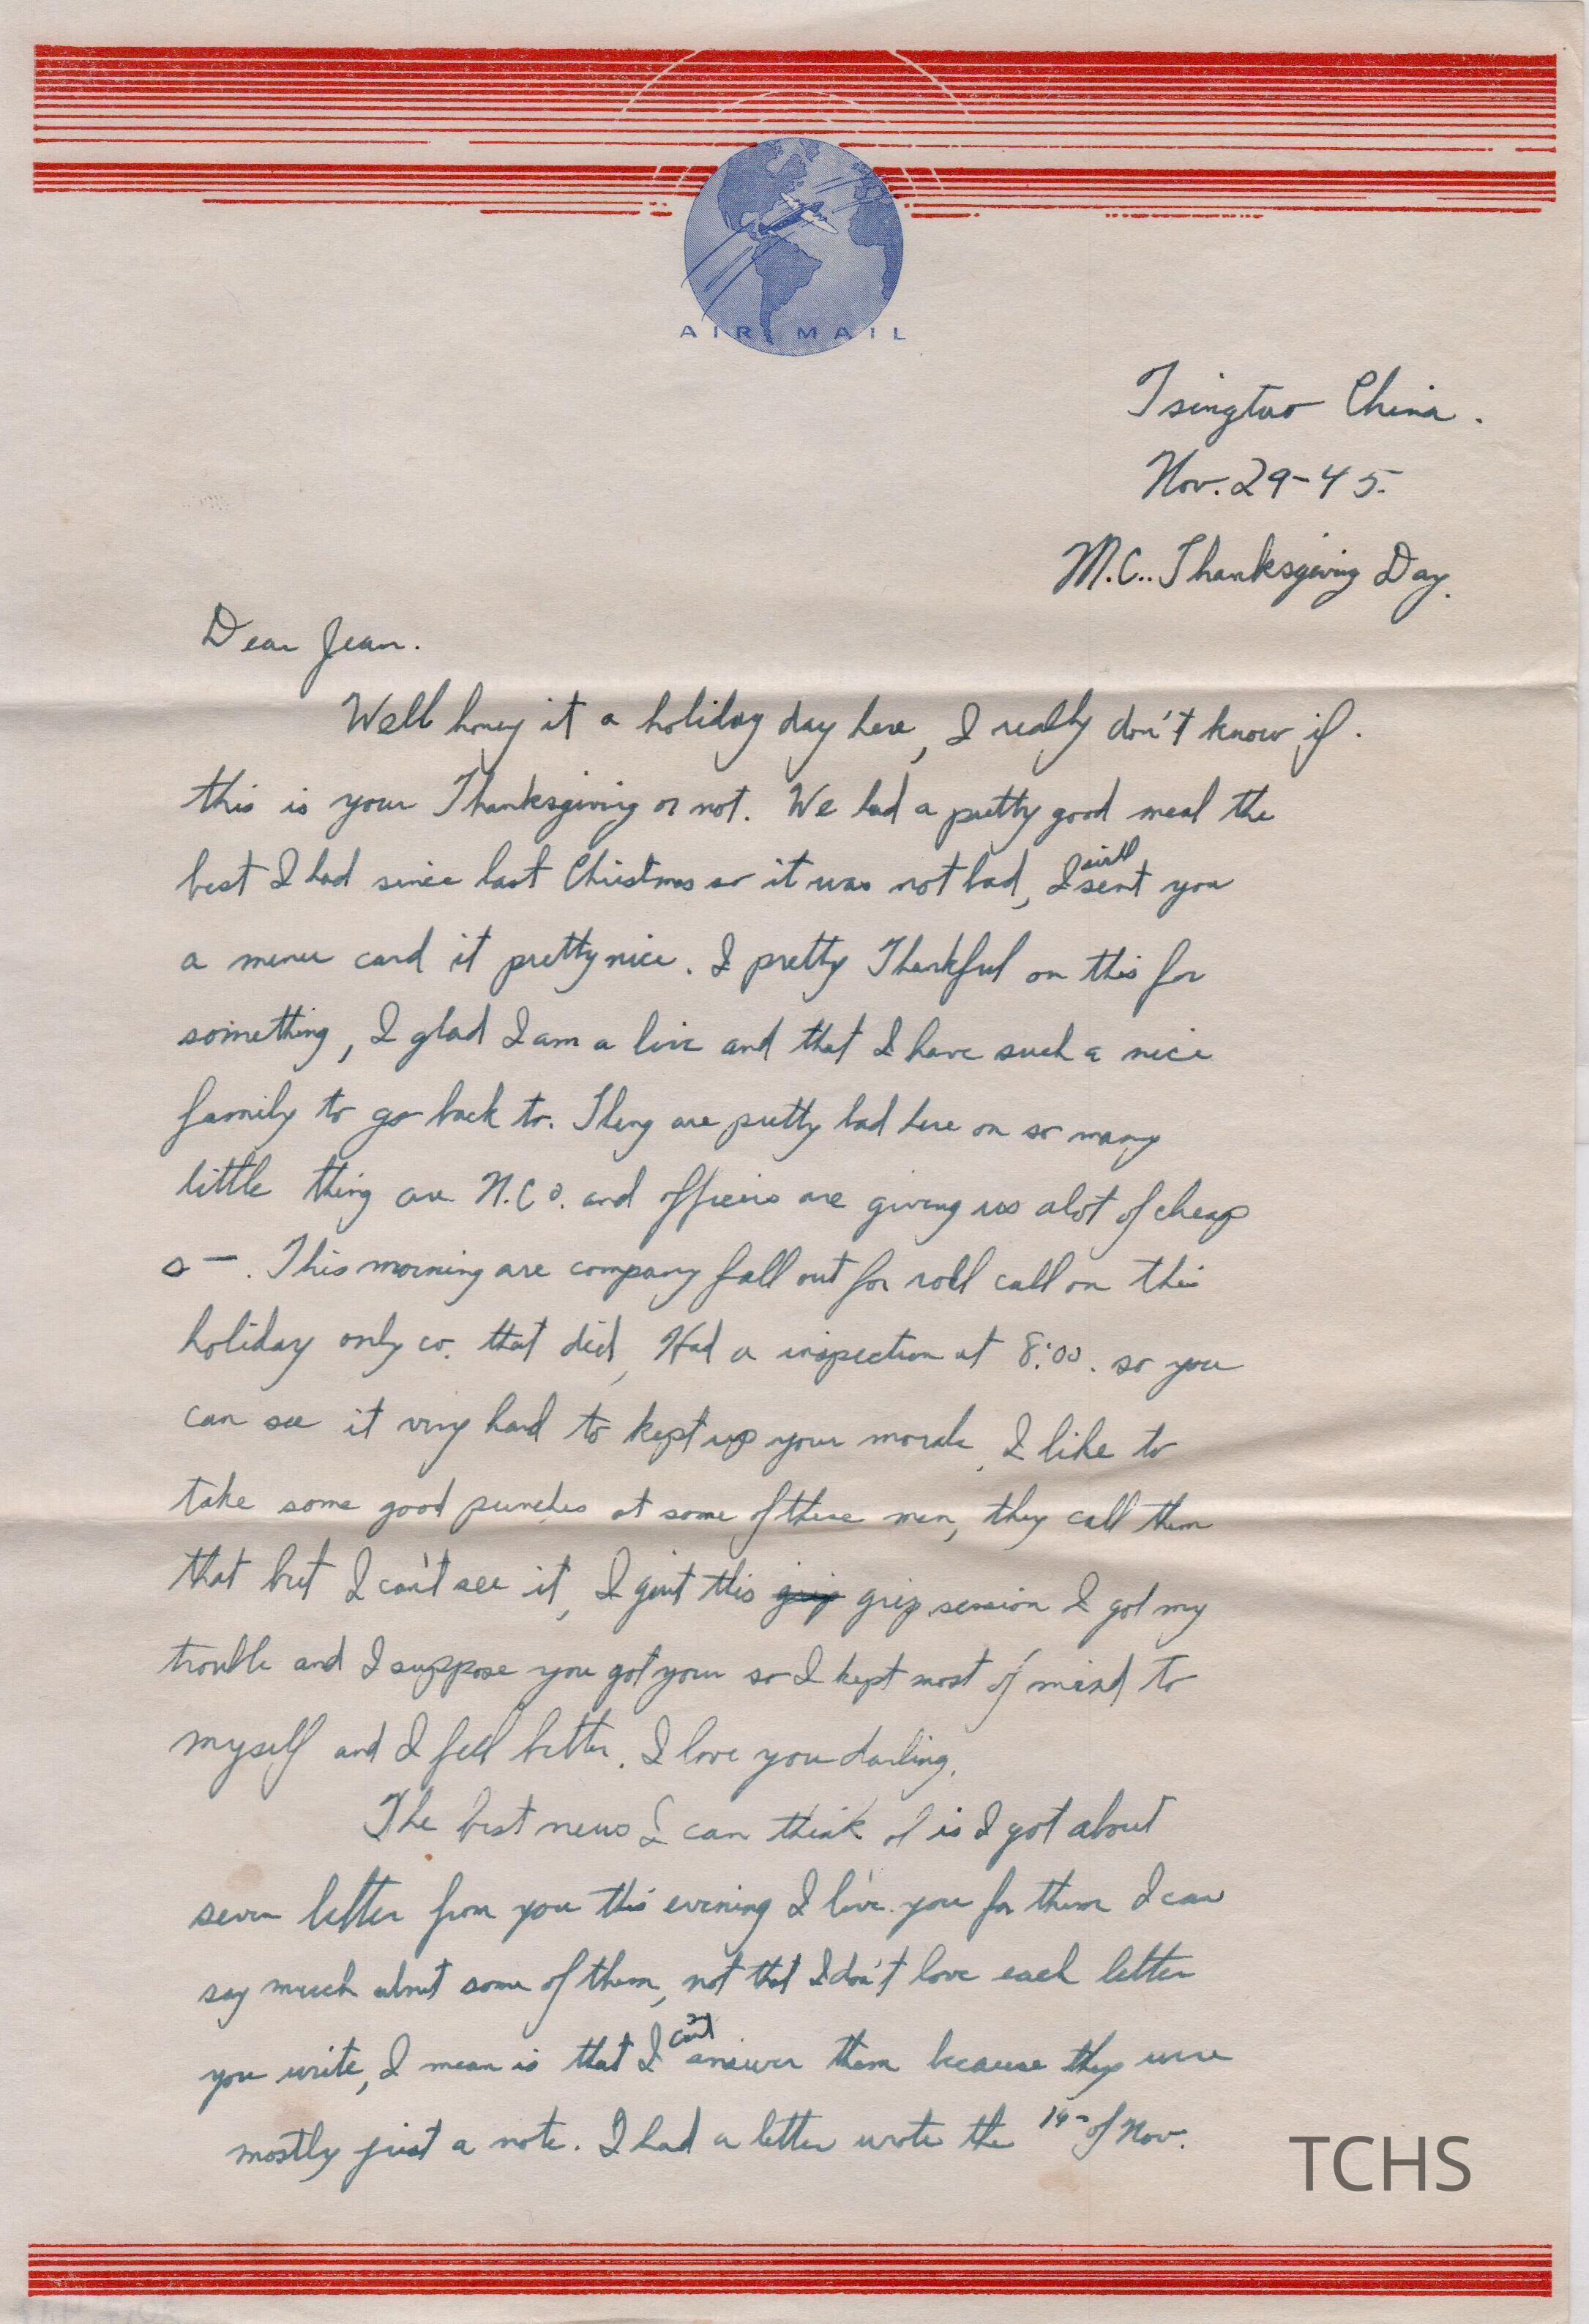 AIR MAIL
Tsingtao China.
Nov. 29-45.
M.C.. Thanksgiving Day.
Dear Jean.
Well honey it a holiday day here, I really don't know if.
this is your Thanksgiving or not. We had a pretty good meal the
best I had since last Christmas so it was not bad, I will sent you
a menu card it pretty nice. I pretty Thankful on this for
something, I glad I am a live and that I have such a nice
family to go back to. Thing are pretty bad here on so many
little thing are N.C.O. and officers are giving us alot of cheap
s—. This morning are company fall out for roll call on this
holiday only co. that did, Had a inspection at 8:00. so you
can see it very hard to kept up your morale, I like to
take some good punches at some of these men, they call them
that but I can't see it, I this grip session I got my
trouble and I suppose you got your so I kept most of mind to
myself and I feel better. I love you darling.
The best news I can think of is I got about
seven letter from you this evening I love you for them I can
say much about some of them, not that I don't love each letter
you write, I mean is that I can't answer them because they were
mostly just a note. I had a letter wrote the of Nov.
TCHS